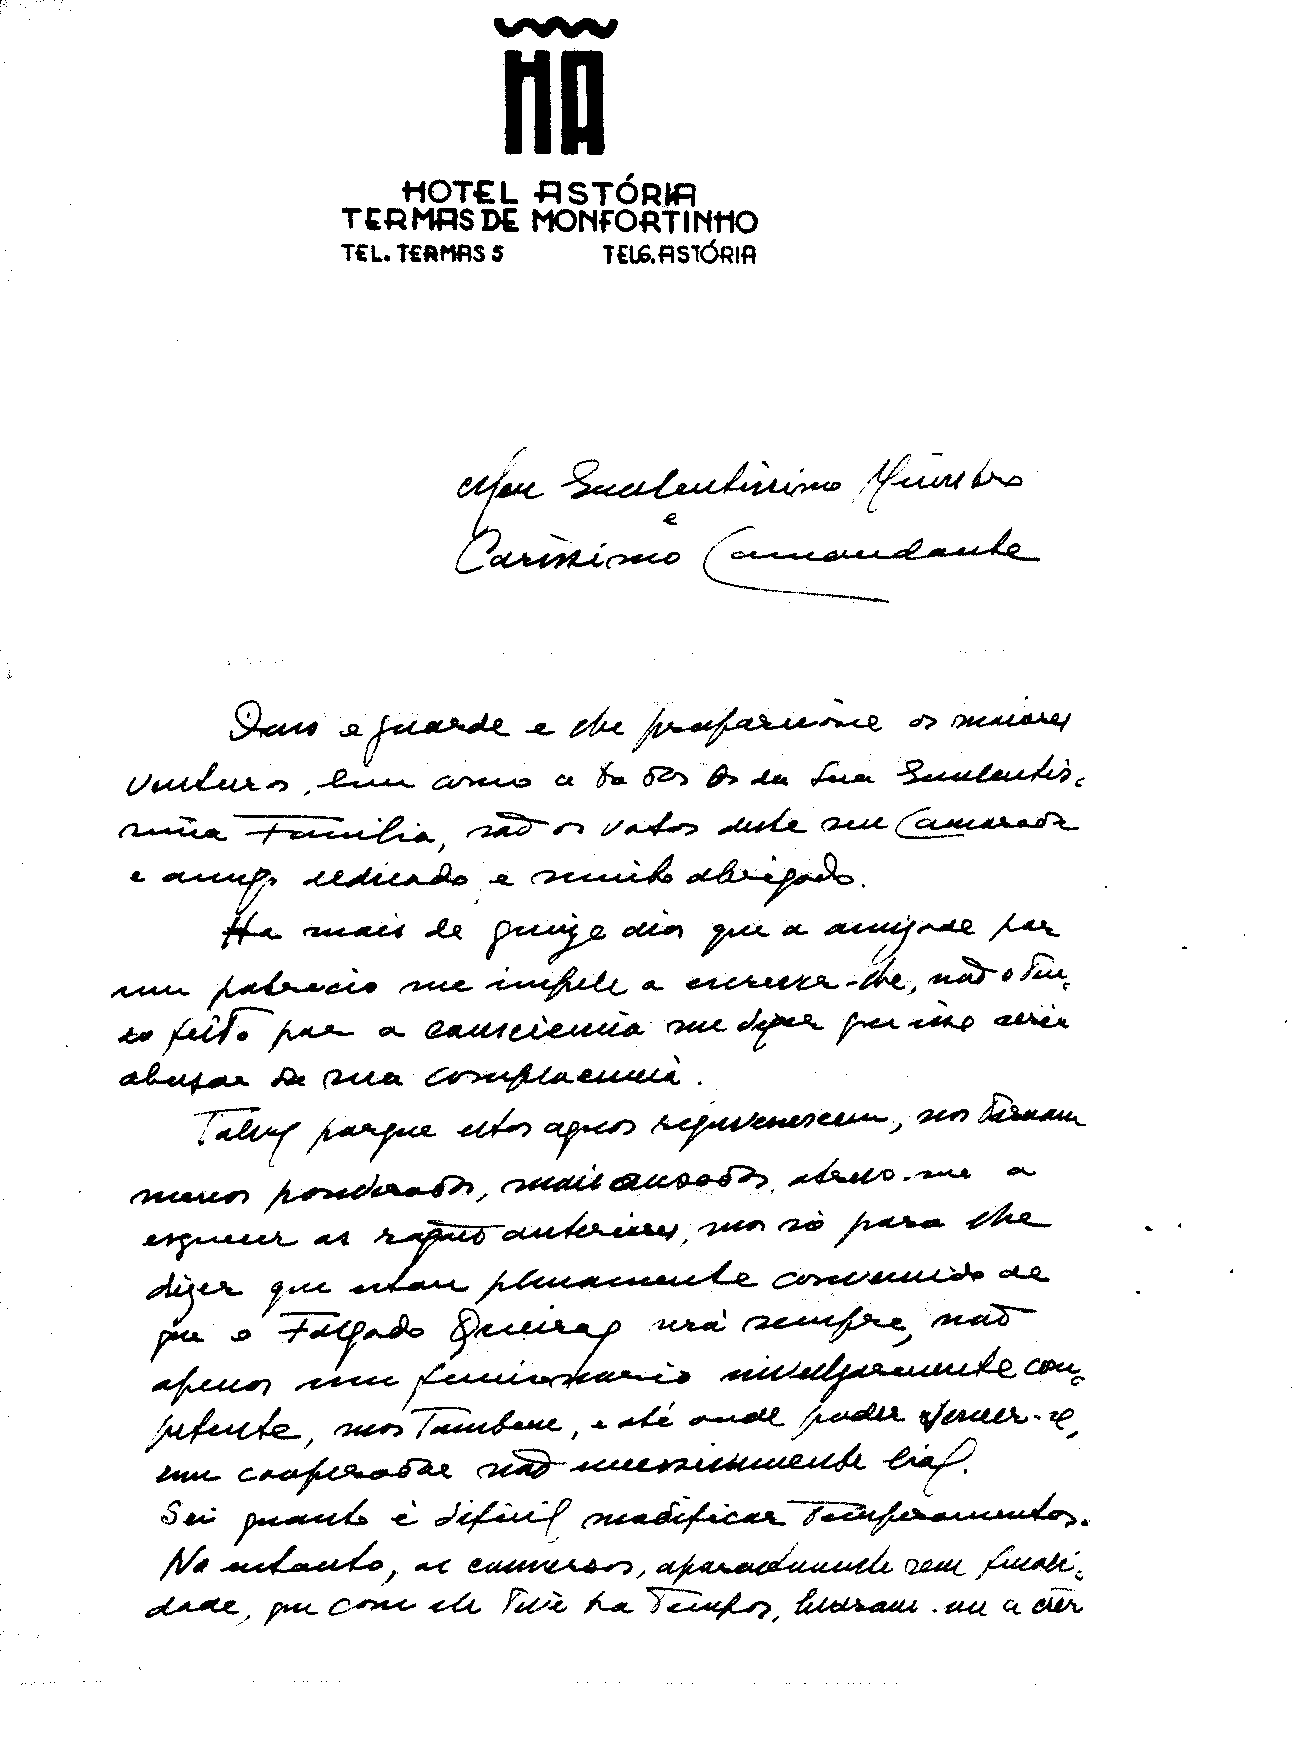 HA
HOTEL ASTÓRIA
TERMAS DE MONFORTINHO
TEL. TERMAS 5 TELG. ASTÓRIA
Meu Excelentissimo Ministro
e
Carissimo Comandante
Deus o guarde e lhe proporcione as maiores
venturas, bem como a todos os da Sua Excelentis-
sima Familia, são os votos deste seu Camarada
e amigo dedicado e muito obrigado.
Ha mais de quinze dias que a amizade por
um patricio me impele a escrever-lhe, não o ten-
do feito por a consciencia me dizer que isso seria
abusar da sua complacencia.
Talvez porque estas aguas rejuvenescem, nos tornam
menos ponderados, mais ousados, atrevo-me a
esquecer as razões anteriores, mas só para lhe
dizer que estou plenamente convencido de
que o Falgado Queiroz será sempre, não
apenas um funcionario invulgarmente com-
petente, mas tambem, e até onde poder vencer-se,
um cooperador não necessariamente leal.
Sei quanto é dificil modificar temperamentos.
No entanto, as conversas, aparentemente sem finali-
dade, que com ele tive ha tempos, levaram-me a crer